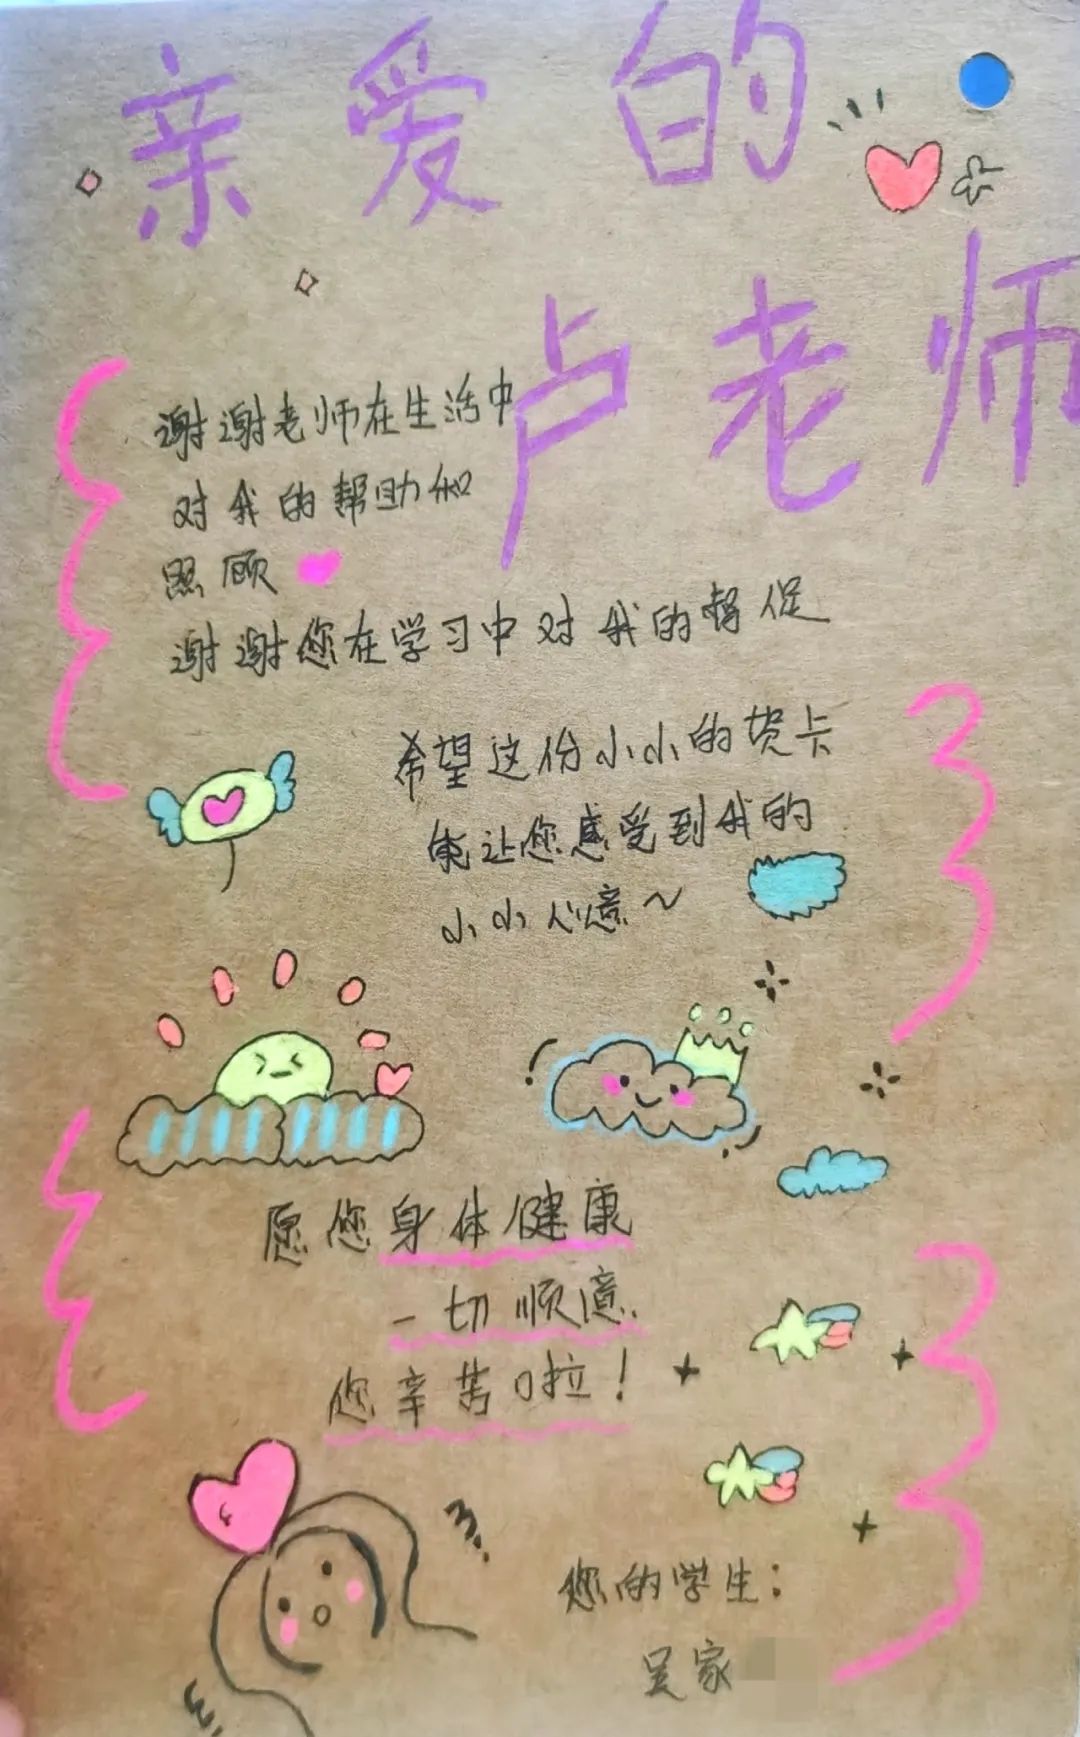 亲爱的
卢老师
谢谢老师在生活中
对我的帮助和
照顾
谢谢您在学习中对我的督促
希望这份小小的贺卡
能让您感受到我的
小小心意~
愿您身体健康
一切顺意
您辛苦啦!
您的学生:
吴家